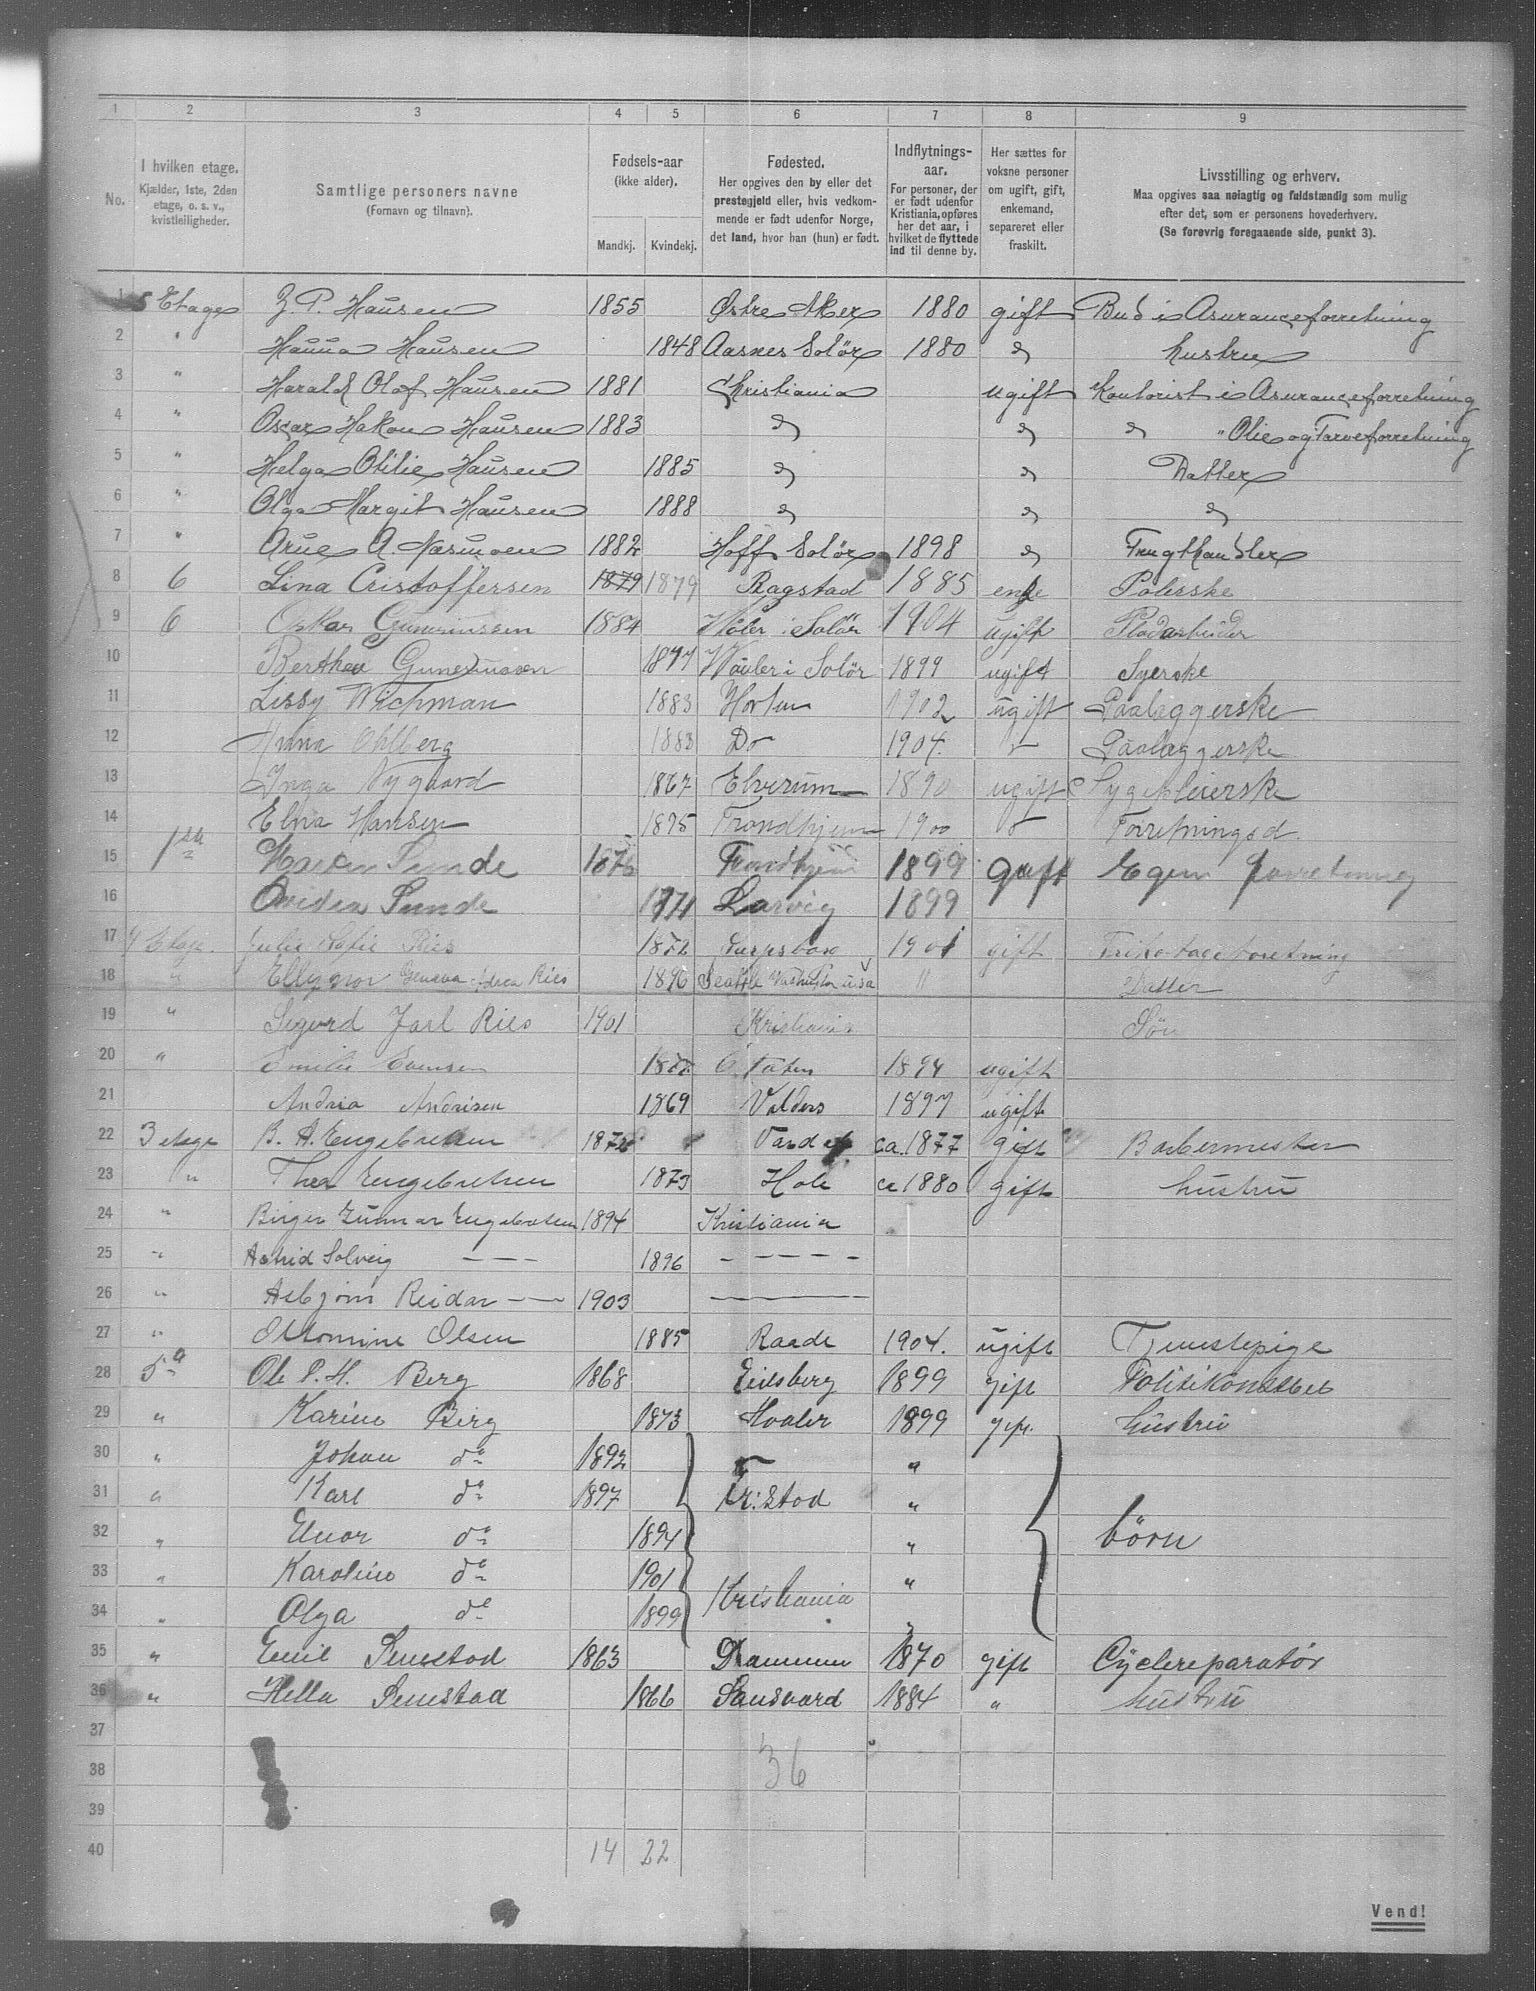 1 2 3 4 5 6 7 8 9
No.
I hvilken etage.
Kjælder, 1ste, 2den
etage, o. s. v.,
kvistleiligheder.
Samtlige personers navne
(Fornavn og tilnavn).
Fødsels-aar
(ikke alder).
Mandkj. Kvindekj.
Fødested.
Her opgives den by eller det
prestegjeld eller, hvis vedkom-
mende er født udenfor Norge,
det land, hvor han (hun) er født.
Indflytnings-
aar.
For personer, der
er født udenfor
Kristiania, opføres
her det aar, i
hvilket de flyttede
ind til denne by.
Her sættes for
voksne personer
om ugift, gift,
enkemand,
separeret eller
fraskilt.
Livsstilling og erhverv.
Maa opgives saa nøiagtig og fuldstændig som mulig
efter det, som er personens hovederhverv.
(Se forøvrig foregaaende side, punkt 3).
1 5 Etage Z. P. Hansen 1855 Østre Aker 1880 gift Bud i Asuranceforretning
2 " Hanna Hansen 1848 Aasnes Solør 1880 d hustru
3 " Harald Olaf Hansen 1881 Christiania ugift Kontorist i Asuranceforretning
4 " Oscar Hakon Hansen 1883 d d d " Olie og Farveforretning
5 " Helga Otilie Hansen 1885 d d Datter
6 " Olga Margit Hansen 1888 d d d
7 " Arne A. Næsmoen 1882 Hoff Solør 1898 d Frugthandler
8 6 Lina Cristoffersen 1879 1879 Ragstad 1885 enke Polerske
9 6 Oskar Guneriussen 1884 Våler i Solør 1904 ugift Pladarbeider
10 Berthea Guneriussen 1877 Vaaler i Solör 1899 ugift Syerske
11 Lissy Wichman 1883 Horten 1902 ugift Paalæggerske
12 Anna Ohlberg 1883 Do 1904. " Paalæggerske
13 Inga Nygaard 1867 Elverum 1890 ugift Sygepleierske
14 Elna Hansen 1895 Trondhjem 1900 " Forretningsd.
15 1ste Sunde 1876 Trondhjem 1899 Gift Egen Forretning
16 Sunde 1871 Larvig 1899
17 4 Etage Julie Sofie Ries 1872 Sarpsborg 1901 gift Trikotageforetning
18 " Ellynor Geneva Ries 1896 Seattle Washington USA " Datter
19 " Sigurd Jarl Ries 1901 Kristiania Søn
20 " Emilie Evensen 1877 Ø Toten 1894 ugift
21 Andrea Andrisen 1869 Valders 1897 ugift
22 3 etage B. A. Engebretsen 1872 Vardø ca. 1877 gift Barbermester
23 " Thea Engebretsen 1873 Hole ca 1880 gift hustru
24 " Birger Gunnar Engebretsen 1894 Kristiania
25 " Astrid Solveig — — — 1896 — — — — —
26 " Asbjørn Reidar — — 1903 — — — —
27 " Ottomine Olsen 1885 Raade 1904. ugift Tjenestepige
28 5te Ole P. H. Berg 1868 Eidsberg 1899 gift Politikonstbel
29 " Karine Berg 1873 Hvaler 1899 gift. hustru
30 " Johan do 1892 "
31 " Karl do 1897 Fr:stad "
32 " Elnor do 1894 " børn
33 " Karoline do 1901 "
34 " Olga do 1899 Kristiania "
35 " Emil Semstad 1863 Drammen 1870 gift Cyclereparatør
36 " Hella Semstad 1866 Sandsvard 1884 " hustru
37
38 36
39
40 14 22
Vend!